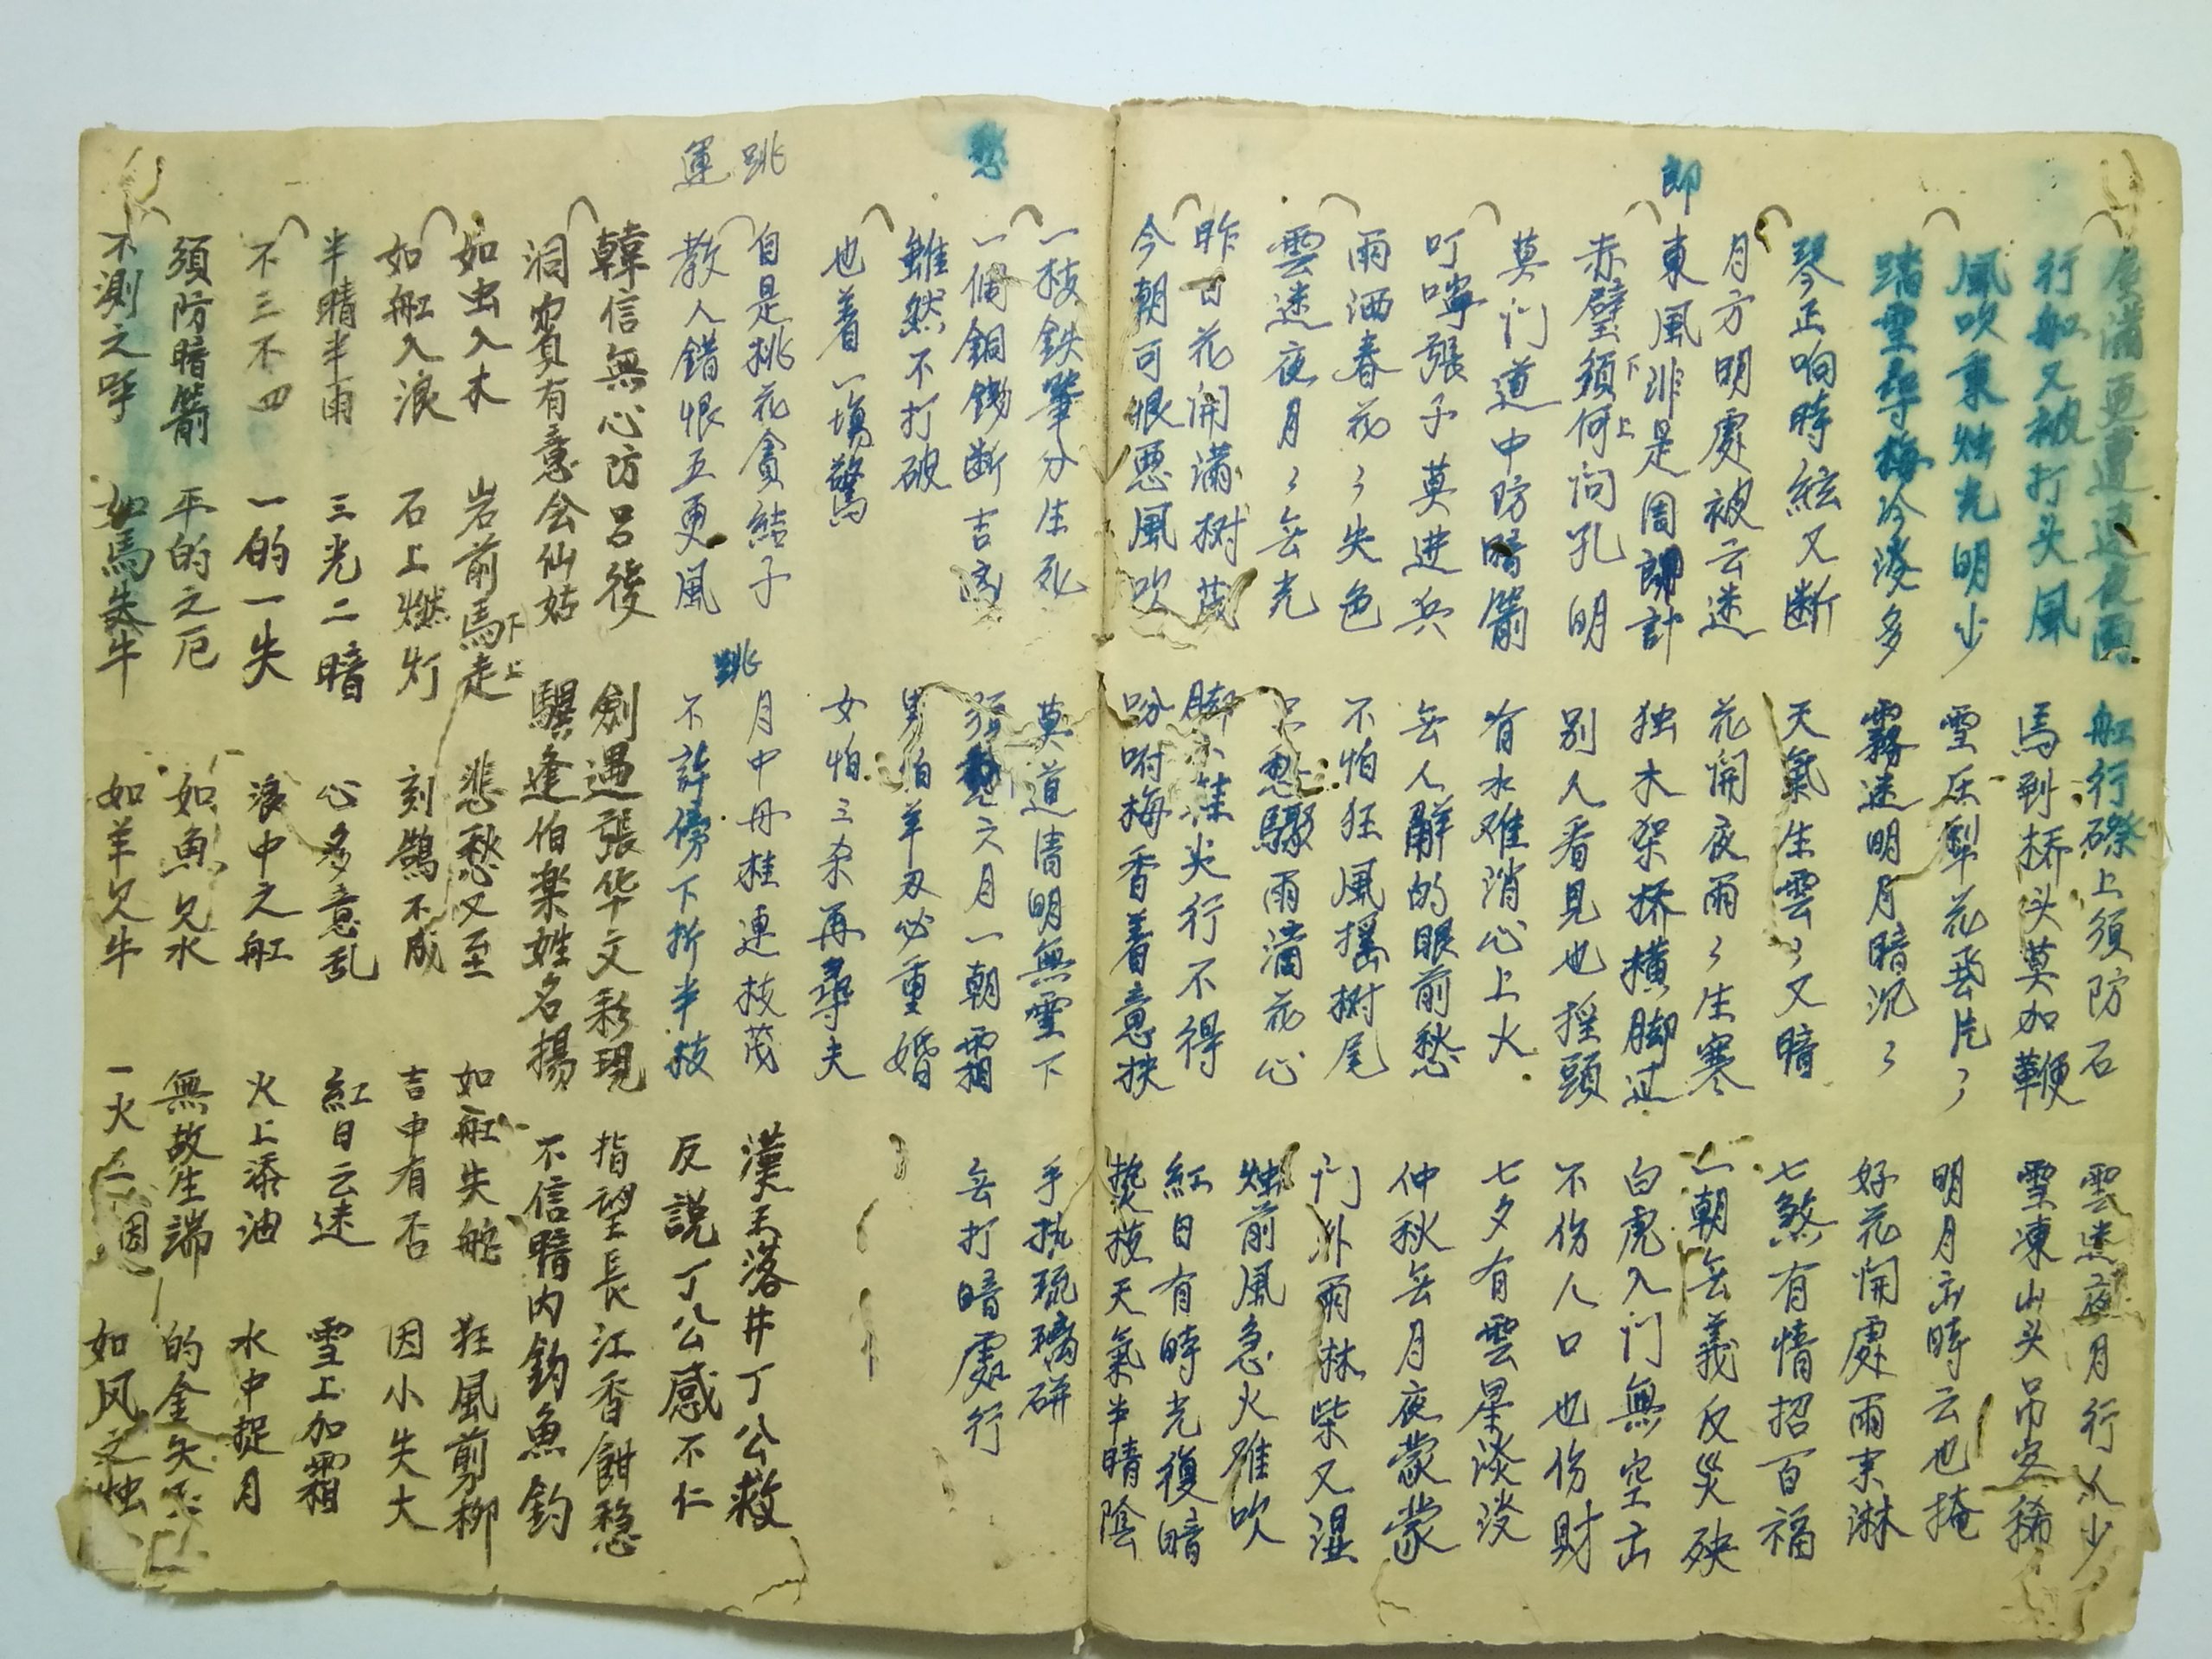 屋漏更遭連夜雨　船行磜上須防石　雲迷夜月行人少
行船又被打头風　馬到桥头莫加鞭　雪凍山头吊客稀
風吹秉烛光明少　雪压犁花飛片々　明月出時云也掩
踏雪尋梅冷淡多　霧迷明月暗沉々　好花開處雨来淋
琴正响時絃又断　天氣生雲々又暗　七煞有情招百福
月方明處被云迷　花開夜雨々生寒　一朝無義反災殃
郎
東風非是周郎計　独木架桥横脚过　白虎入门無空出
赤壁須何问孔明　别人看見也摇頭　不伤人口也伤財
下上
莫门道中防暗箭　有水难消心上火　七夕有雲星淡淡
叮嚀張子莫进兵　無人解的眼前愁　仲秋無月夜蒙蒙
雨洒春花々失色　不怕狂風摇樹尾　门外雨淋柴又湿
雲迷夜月々無光　只愁驟雨滴花心　烛前風急火难吹
昨日花開滿树茂　脚不失行不得　紅日有時光復暗
今朝可恨悪風吹　吩咐梅香着意扶　枝天氣半晴陰
一枝鉄筆分生死　莫道清明無雪下　手执琉璃瓶
愁
一個銅鑼断吉凶　須愁六月一朝霜　無打暗處行
雖然不打破　男怕羊刃必重婚
也着一塲驚　女怕三杀再尋夫
跳
自是挑花貪結子　月中丹桂連枝茂　漢王落井丁公救
運
教人錯恨五更風　不許傍下折半枝　反說丁公感不仁
跳
韓信無心防吕後　劍遇張华文彩現　指望長江香餌穏
洞賓有意会仙姑　驥逢伯楽姓名揚　不信暗内釣魚钓
如虫入木　岩前馬走　悲愁又至　如船失舵　狂風剪柳
下上
如船入浪　石上燃灯　刻鵠不成　吉中有否　因小失大
半晴半雨　三光二暗　心多意乱　紅日云迷　雪上加霜
不三不四　一的一失　浪中之船　火上添油　水中捉月
須防暗箭　平的之厄　如魚欠水　無故生端　的金失
不測之呼　如馬失牛　如羊欠牛　一火二烟　如风之烛